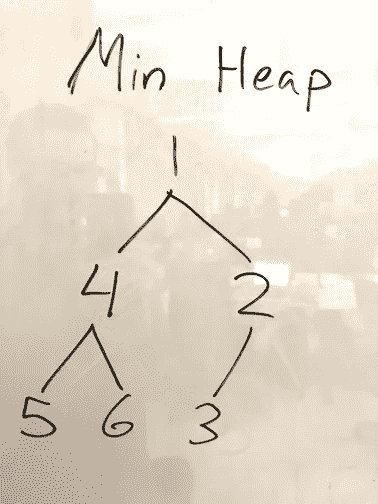 Min Heap
1
4 2
5 6 3